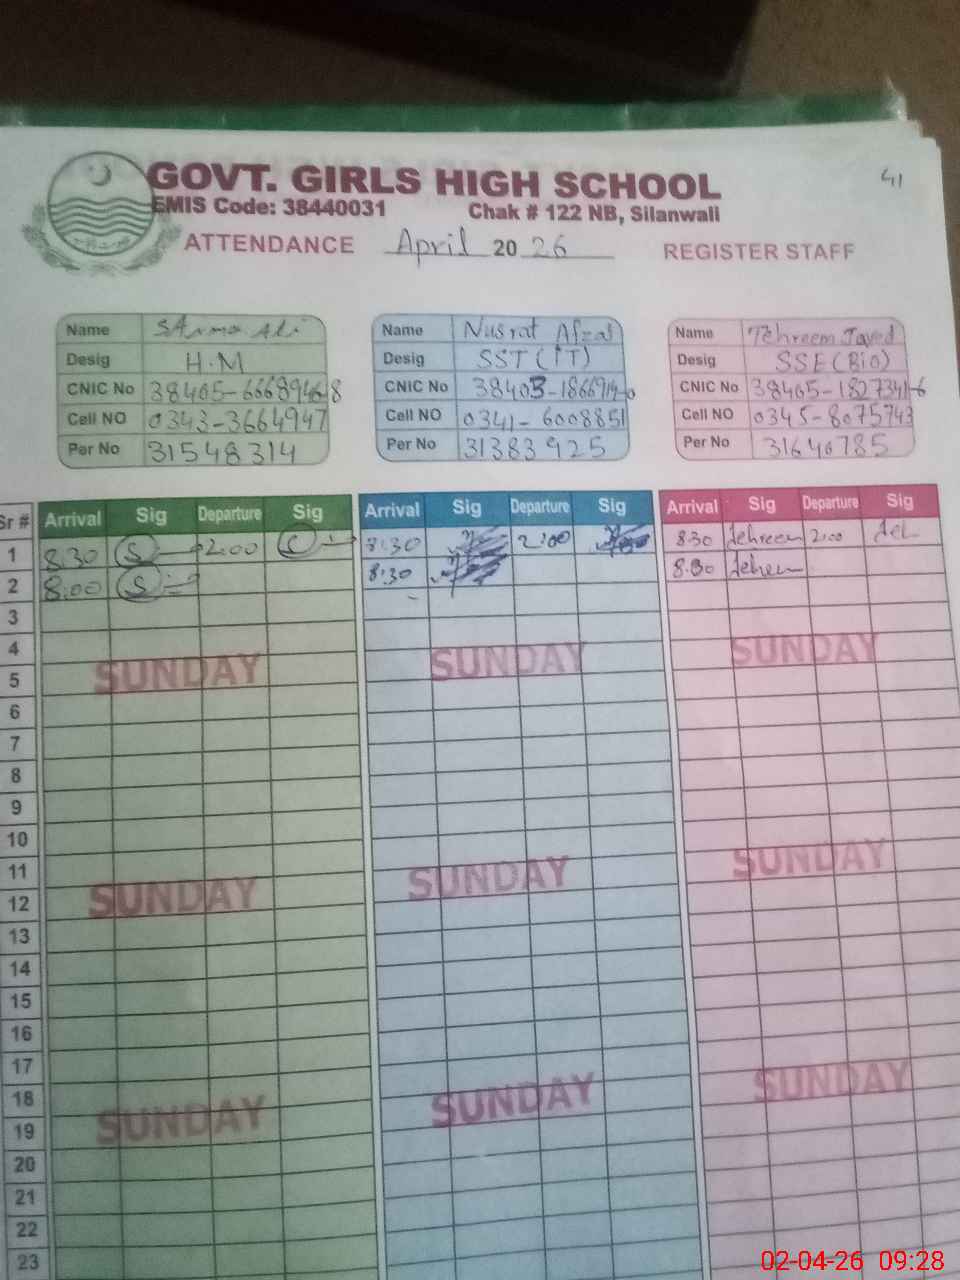 GOVT. GIRLS HIGH SCHOOL
41
EMIS Code: 38440031 Chak # 122 NB, Silanwali
ATTENDANCE April 2026 REGISTER STAFF
Name Ali
Desig H.M
CNIC No
Cell NO 0343-3664947
Per No 31548314
Name Nusrat Afzal
Desig SST (IT)
CNIC No
Cell NO 0341-6008851
Per No 31383925
Name Tehreem Javed
Desig SSE (Bio)
CNIC No
Cell NO 0345-8075743
Per No 31640785
Sr # Arrival Sig Departure Sig Arrival Sig Departure Sig Arrival Sig Departure Sig
1 8:30 2:00 8:30 2:00 8:30 Tehreem 2:00 Teh
2 8:00 8:30 8:30
3
4
SUNDAY SUNDAY SUNDAY
5
6
7
8
9
10
11
SUNDAY SUNDAY SUNDAY
12
13
14
15
16
17
18
SUNDAY SUNDAY SUNDAY
19
20
21
22
23
02-04-26 09:28